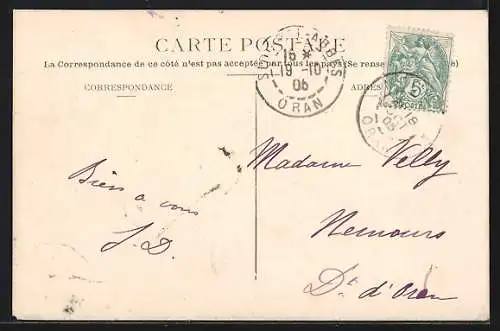 CARTE POSTALE
La Correspondance de ce côté n'est pas acceptée par tous les pays (Se rense à la poste)
CORRESPONDANCE
ADRES
SIDI-BEL-ABBÈS
16 *
19-10
05
ORAN
5
ORAN
Madame Velly
Nemours
Dt d'Oran
Bien à vous
J.D.